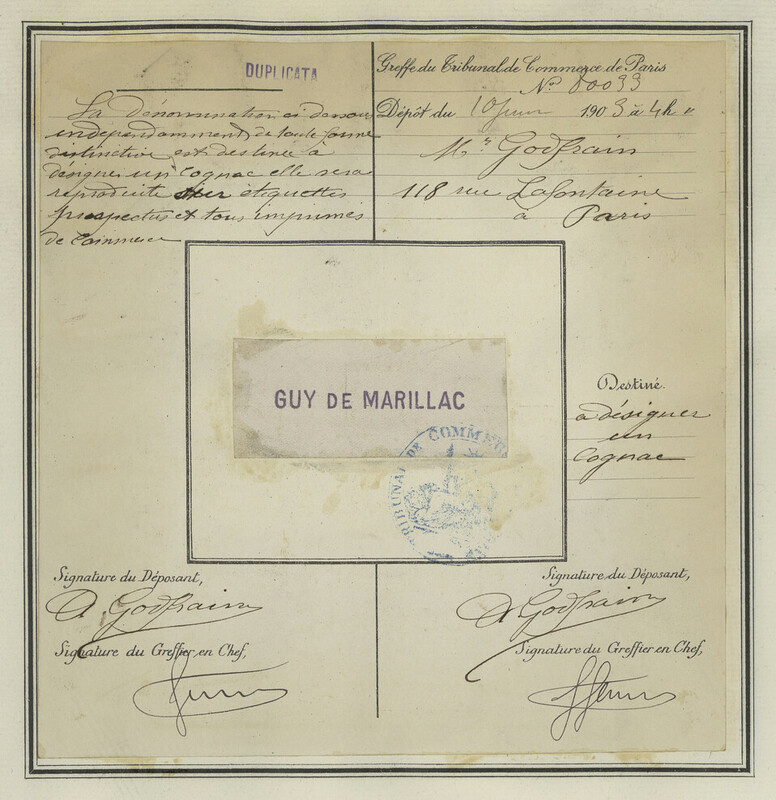 DUPLICATA
La Dénomination ci dessus
indépendamment de toute forme
distinctive est destinée à
désigner un Cognac elle sera
reproduite sur étiquettes
prospectus et tous imprimés
de Commerce
Greffe du Tribunal de Commerce de Paris
No. 80033
Dépôt du 10 Juin 1903 à 4h "
Mr. Godfrain
118 rue Lafontaine
à Paris
GUY DE MARILLAC
TRIBUNAL DE COMMERCE
Destiné.
à désigner
un
Cognac
Signature du Déposant,
A Godfrain
Signature du Greffier en Chef,
Signature du Déposant,
A Godfrain
Signature du Greffier en Chef,